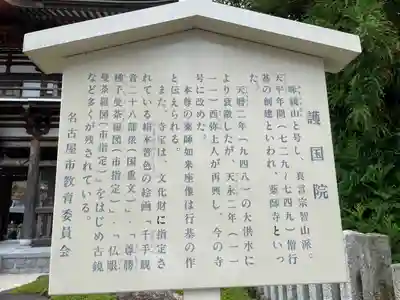 護国院
味鋺山と号し、真言宗智山派。
天平年間(七二九/七四九)僧行
基の創建といわれ、薬師寺といっ
た。
天暦二年(九四八)の大洪水に
より衰微したが、天永二年(一一
一一)西弥上人が再興し、今の寺
号に改めた。
本尊の薬師如来座像は行基の作
と伝えられる。
また、寺宝は、文化財に指定さ
れている絹本著色の絵画「千手観
音二十八部衆(国重文)」、「尊勝
種子曼荼羅図(市指定)」、「仏眼
曼荼羅図(市指定)」をはじめ古鏡
など多くが残されている。
名古屋市教育委員会